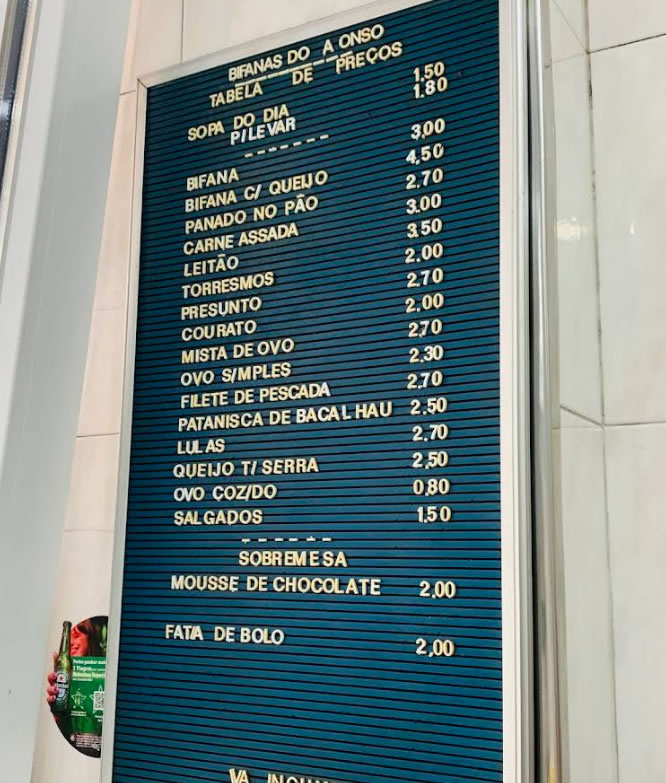 BIFANAS DO A ONSO
TABELA DE PREÇOS
SOPA DO DIA 1.50
P/LEVAR 1.80
- - - - - - -
BIFANA 3,00
BIFANA C/ QUEIJO 4,50
PANADO NO PÃO 2.70
CARNE ASSADA 3.00
LEITÃO 3.50
TORRESMOS 2.00
PRESUNTO 2.70
COURATO 2.00
MISTA DE OVO 2.70
OVO S/MPLES 2.30
FILETE DE PESCADA 2.70
PATANISCA DE BACALHAU 2.50
LULAS 2.70
QUEIJO T/ SERRA 2,50
OVO ÇOZ/DO 0.80
SALGADOS 1.50
- - - - - -
SOBREMESA
MOUSSE DE CHOCOLATE 2,00
FATIA DE BOLO 2,00